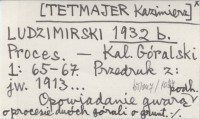 [TETMAJER Kazimierz]x
LUDZIMIRSKI 1932 b.
Proces. — Kal. Góralski
1: 65-67. Przedruk z:
jw. 1913...
podh.
Opowiadanie gwarą
o procesie dwóch górali o grunt.